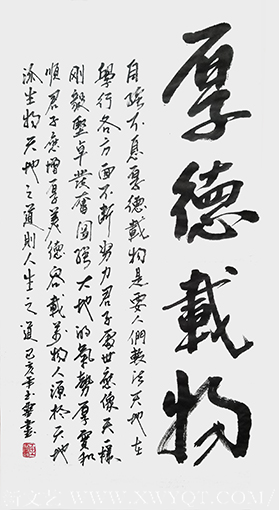 厚德載物
自強不息厚德載物是要人們效法天地在
學行各方面不斷努力君子處世應像天一樣
剛毅堅卓發奮圖強大地的氣勢厚實和
順君子應增厚美德容載萬物人源於天地
涂生物天地之道則人生之道己亥年玉雲書
新文艺 WWW.XWYQT.COM